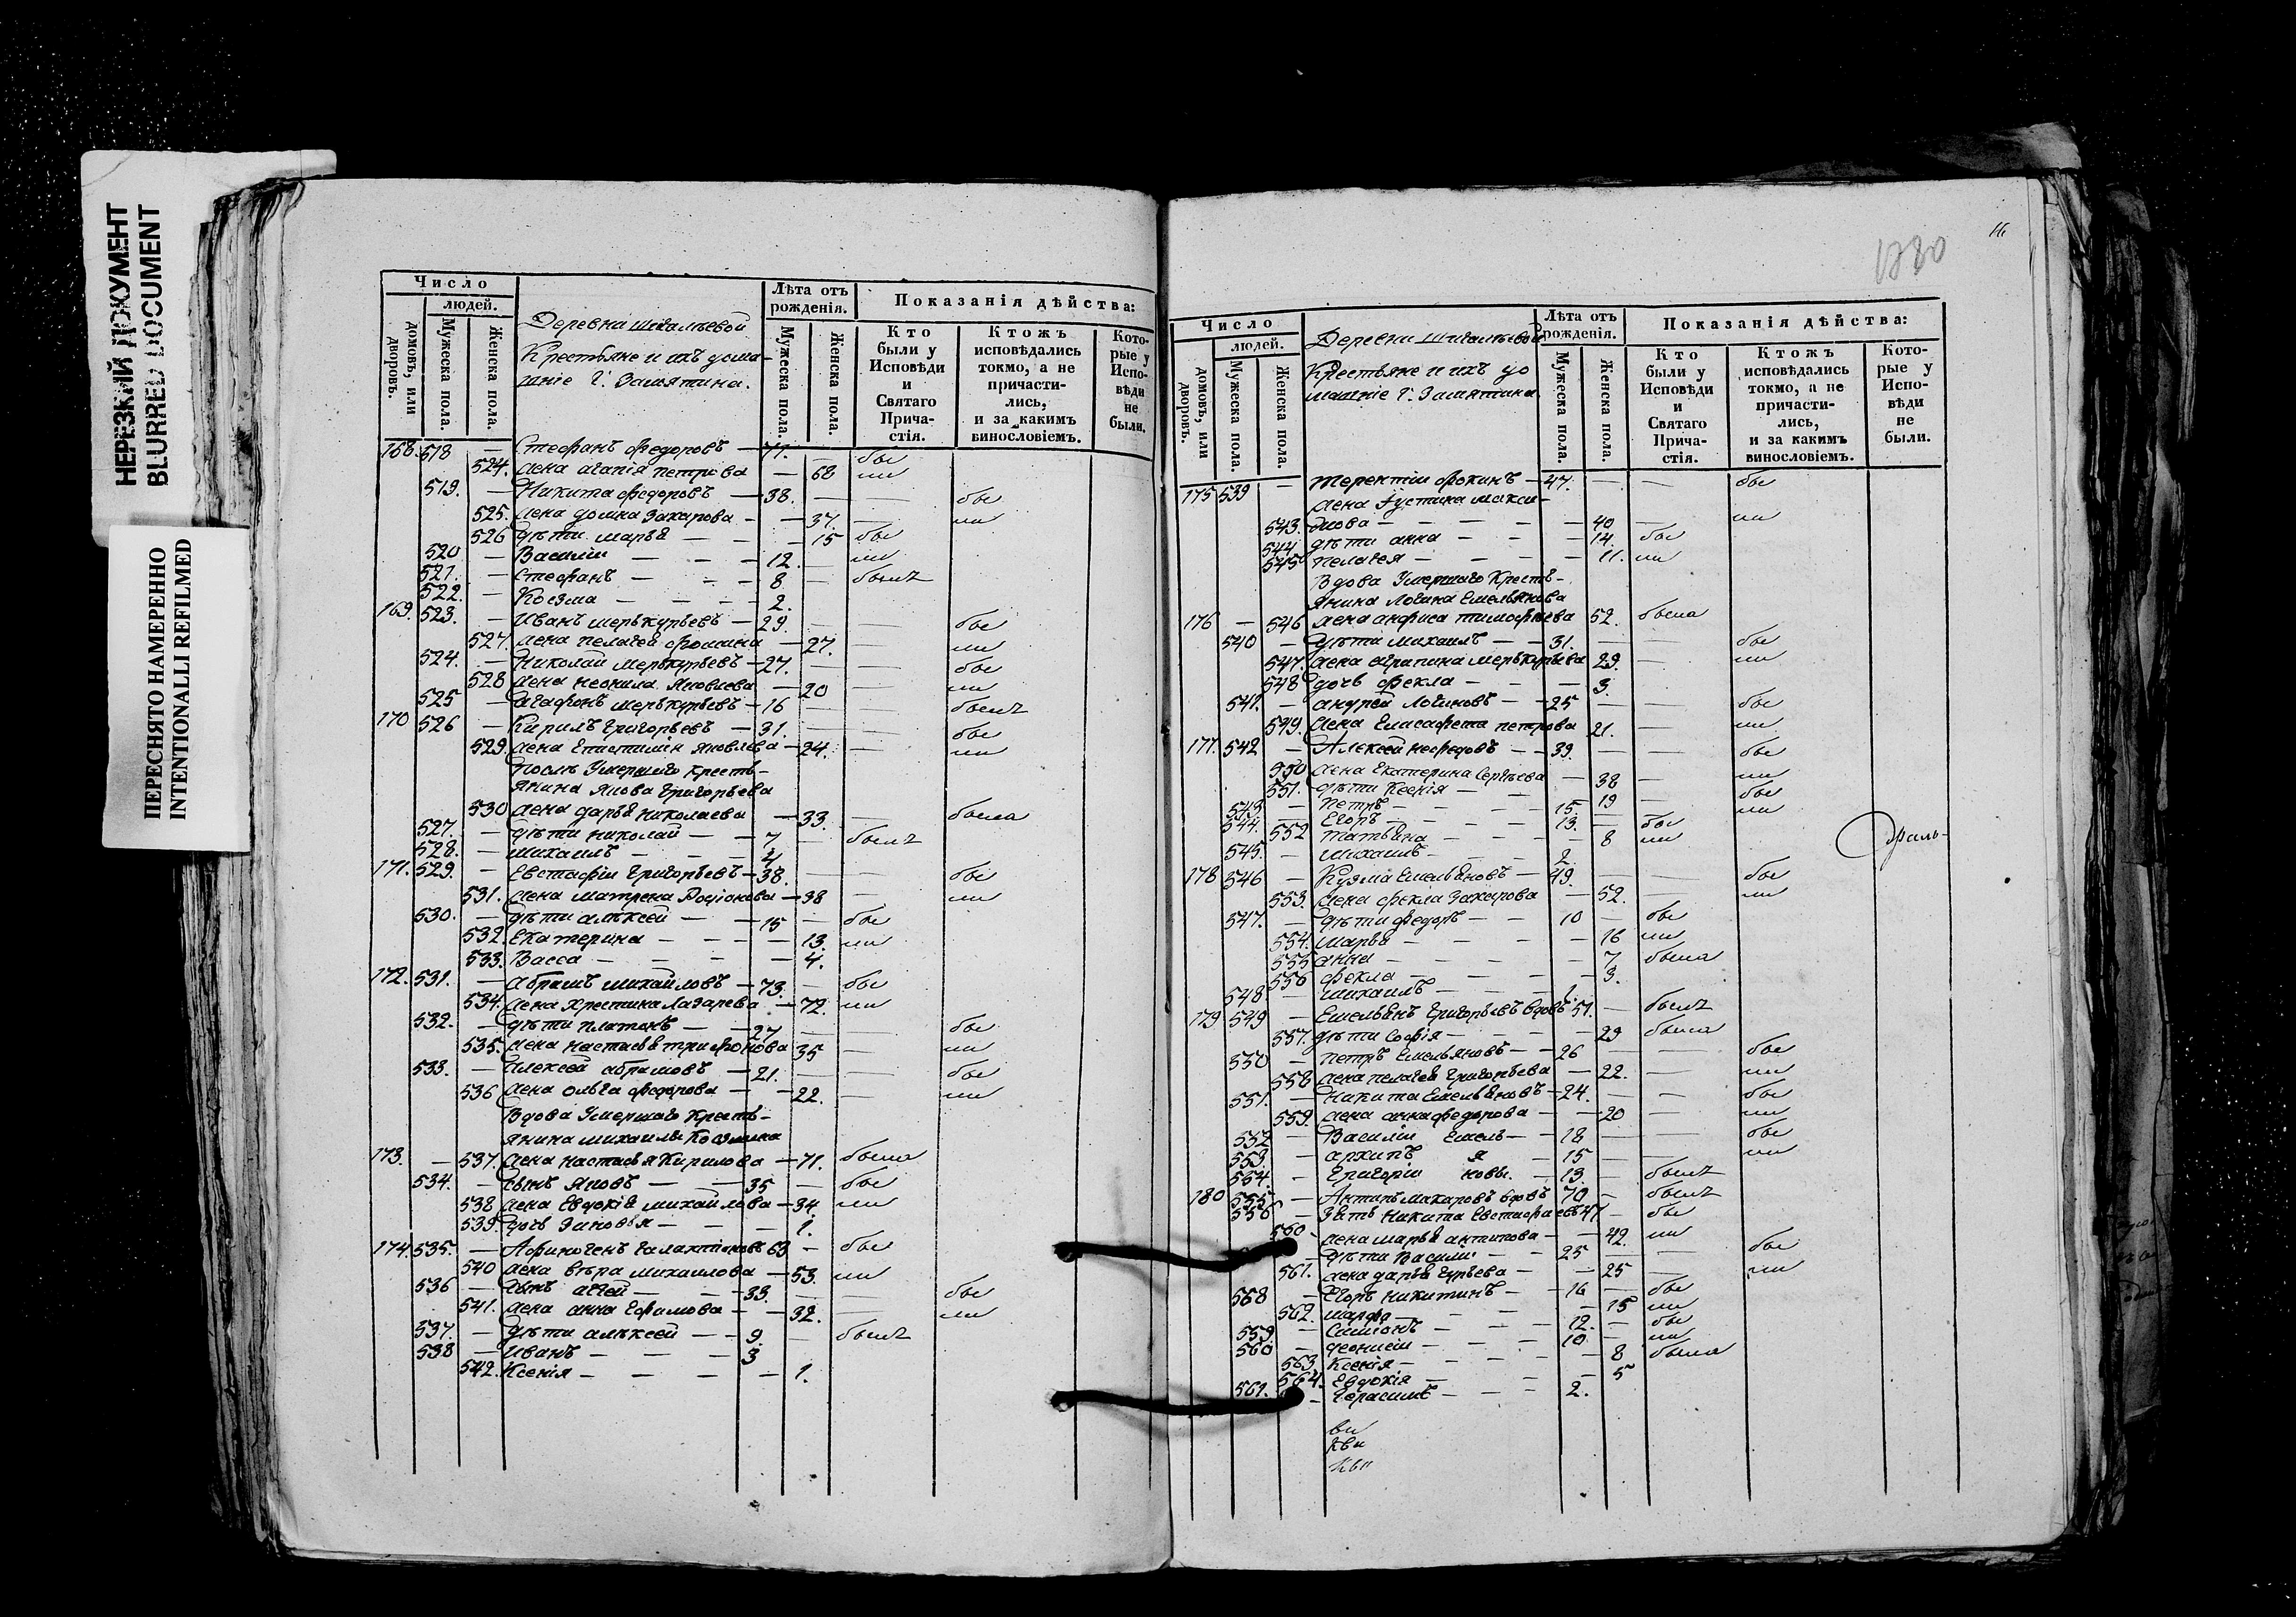 НЕРЕЗКИЙ ДОКУМЕНТ
BLURRED DOCUMENT
ПЕРЕСНЯТО НАМЕРЕННО
INTENTIONALLI REFILMED
Число
людей.
домовъ, или дворовъ.
Мужеска пола.
Женска пола.
Крестьяне и ихъ дома-
шніе Г. Замятина.
Лѣта отъ рожденія.
Мужеска пола.
Женска пола.
Показанія дѣйства:
Кто были у Исповѣди и Святаго Прича-стія.
Ктожъ исповѣдались токмо, а не причасти-лись, и за какимъ винословіемъ.
Кото-рые у Испо-вѣди не были.
168. 518 — Стефанъ Федоровъ — 71. — бы
524. жена агапія петрова — 68 ли
519. — Никита Федоровъ — 38. — — бы
525. жена домна Захарова — — 37. — ли
526 дѣти марья — — — 15 бы
520 — Василій — — — 12. — ли
521. — Стефанъ — — — 8 — былъ
522. — Козма — — — 2.
169. 523. — Иванъ меркурьевъ — 29. — — бы
527. жена пелагея фомина — 27. ли
524. — Николай меркурьевъ — 27. — — бы
528 жена неонила Яковлева — 20 — ли
525 — агафонъ меркурьевъ — 16 — — былъ
170 526 — Кирилъ григорьевъ — 31. — — бы
529. жена Епистимія яковлева — 24. — ли
послѣ Умершаго кресть-
янина Якова григорьева
530 жена дарья николаева — 33. — была
527. — дѣти николай — — 7 — былъ
528. — михаилъ — — — 4
171. 529. — Евстафій григорьевъ — 38. — — бы
531. жена матрена Родіонова — 38 — ли
530. — дѣти алѣксей — — 15 — бы
532. Екатерина — — — 13. ли
533. Васса — — — — 4.
172. 531. — абрамъ михайловъ — 73. — бы
534. жена христина лазарева — 72. ли
532. — дѣти платонъ — — 27 — — бы
535. жена настасья трифонова 35 — ли
533. — алексей абрамовъ — 21. — — бы
536 жена ольга федорова — — 22. — ли
Вдова Умершаго кресть-
янина михаилы Козмина
173. — 537. жена настасья Кирилова — 71. была
534. — сынъ яковъ — — 35 — бы
538 жена Евдокія михайлова — 34. ли
539 дочь Зиновья — — — 1.
174. 535. — Афиногенъ галактіоновъ 63 — бы
540 жена вѣра михаилова — 53. ли
536 — сынъ агей — — 33. — — бы
541. жена анна ефимова — — 32. — ли
537. — дѣти алѣксей — — 9. — былъ
538 — иванъ — — — 3
542. Ксенія — — — — 1.
1780
16
Число
людей.
домовъ, или дворовъ.
Мужеска пола.
Женска пола.
Крестьяне и ихъ до
машніе Г. Замятина.
Лѣта отъ рожденія.
Мужеска пола.
Женска пола.
Показанія дѣйства:
Кто были у Исповѣди и Святаго Прича-стія.
Ктожъ исповѣдались токмо, а не причасти-лись, и за какимъ винословіемъ.
Кото-рые у Испо-вѣди не были.
175 539 — терентій фокинъ — 47. — — бы
жена Іустина макси-
543. мова — — — — 40 — ли
544 дѣти анна — — — 14. бы
545 пелагея — — — — 11. ли
Вдова Умершаго кресть-
янина логина Емельянова
176 — 546 жена анфиса тимофѣева 52. была
540 — дѣти михаилъ — — 31. — — бы
547. жена агрипина меркурьева 29. — ли
548 дочь фекла — — — 3.
541. — андрей логиновъ — — 25 — — бы
549. жена Елисафета петрова 21. — ли
177. 542 — Алексей нефедовъ — — 39. — — бы
550 жена Екатерина Сергѣева — 38 — ли
551. дѣти Ксенія — — — 19 — бы
543 — Петръ — — — 15. — ли
544. — Егоръ — — — 13. — бы
552 татьяна — — — — 8 ли
545. — михаилъ — — — 2.
178 546 — Кузма Емельяновъ — 49. — — бы
553. жена фекла Захарова — 52. ли
547. — дѣти федоръ — — 10 — бы
554. марья — — — — 16 ли
555 анна — — — — 7 была
556 фекла — — — — 3.
548 — михаилъ — — — 1.
179 549 — Емельянъ григорьевъ вдовъ 51. — былъ
557. дѣти Софія — — — 29 была
550 — петръ Емельяновъ — — 26 — — бы
558 жена пелагея григорьева — 22. — ли
551. — никита Емельяновъ — 24. — — бы
559. жена анна федорова — — 20 — ли
552 — Василій Емель — 18 — — бы
553. — архипъ я — 15 — — ли
554. — григорій новы. — 13. — былъ
180 555 — Антипъ макаровъ вдовъ 70 — былъ
556 — Зять никита Евстафьевъ 47 — бы
560 жена марья антипова — — 42. ли
— дѣти Василій — — 25 — — бы
561. жена дарья гурьева — — 25 — ли
558 — Егоръ никитинъ — — 16 — бы
562. марфа — — — — 15 ли
559 — Самсонъ — — — 12. — бы
560 — деонисій — — — 10 — ли
563. Ксенія — — — — 8 была
564. Евдокія — — — — 5
561. — Герасимъ — — — 2.